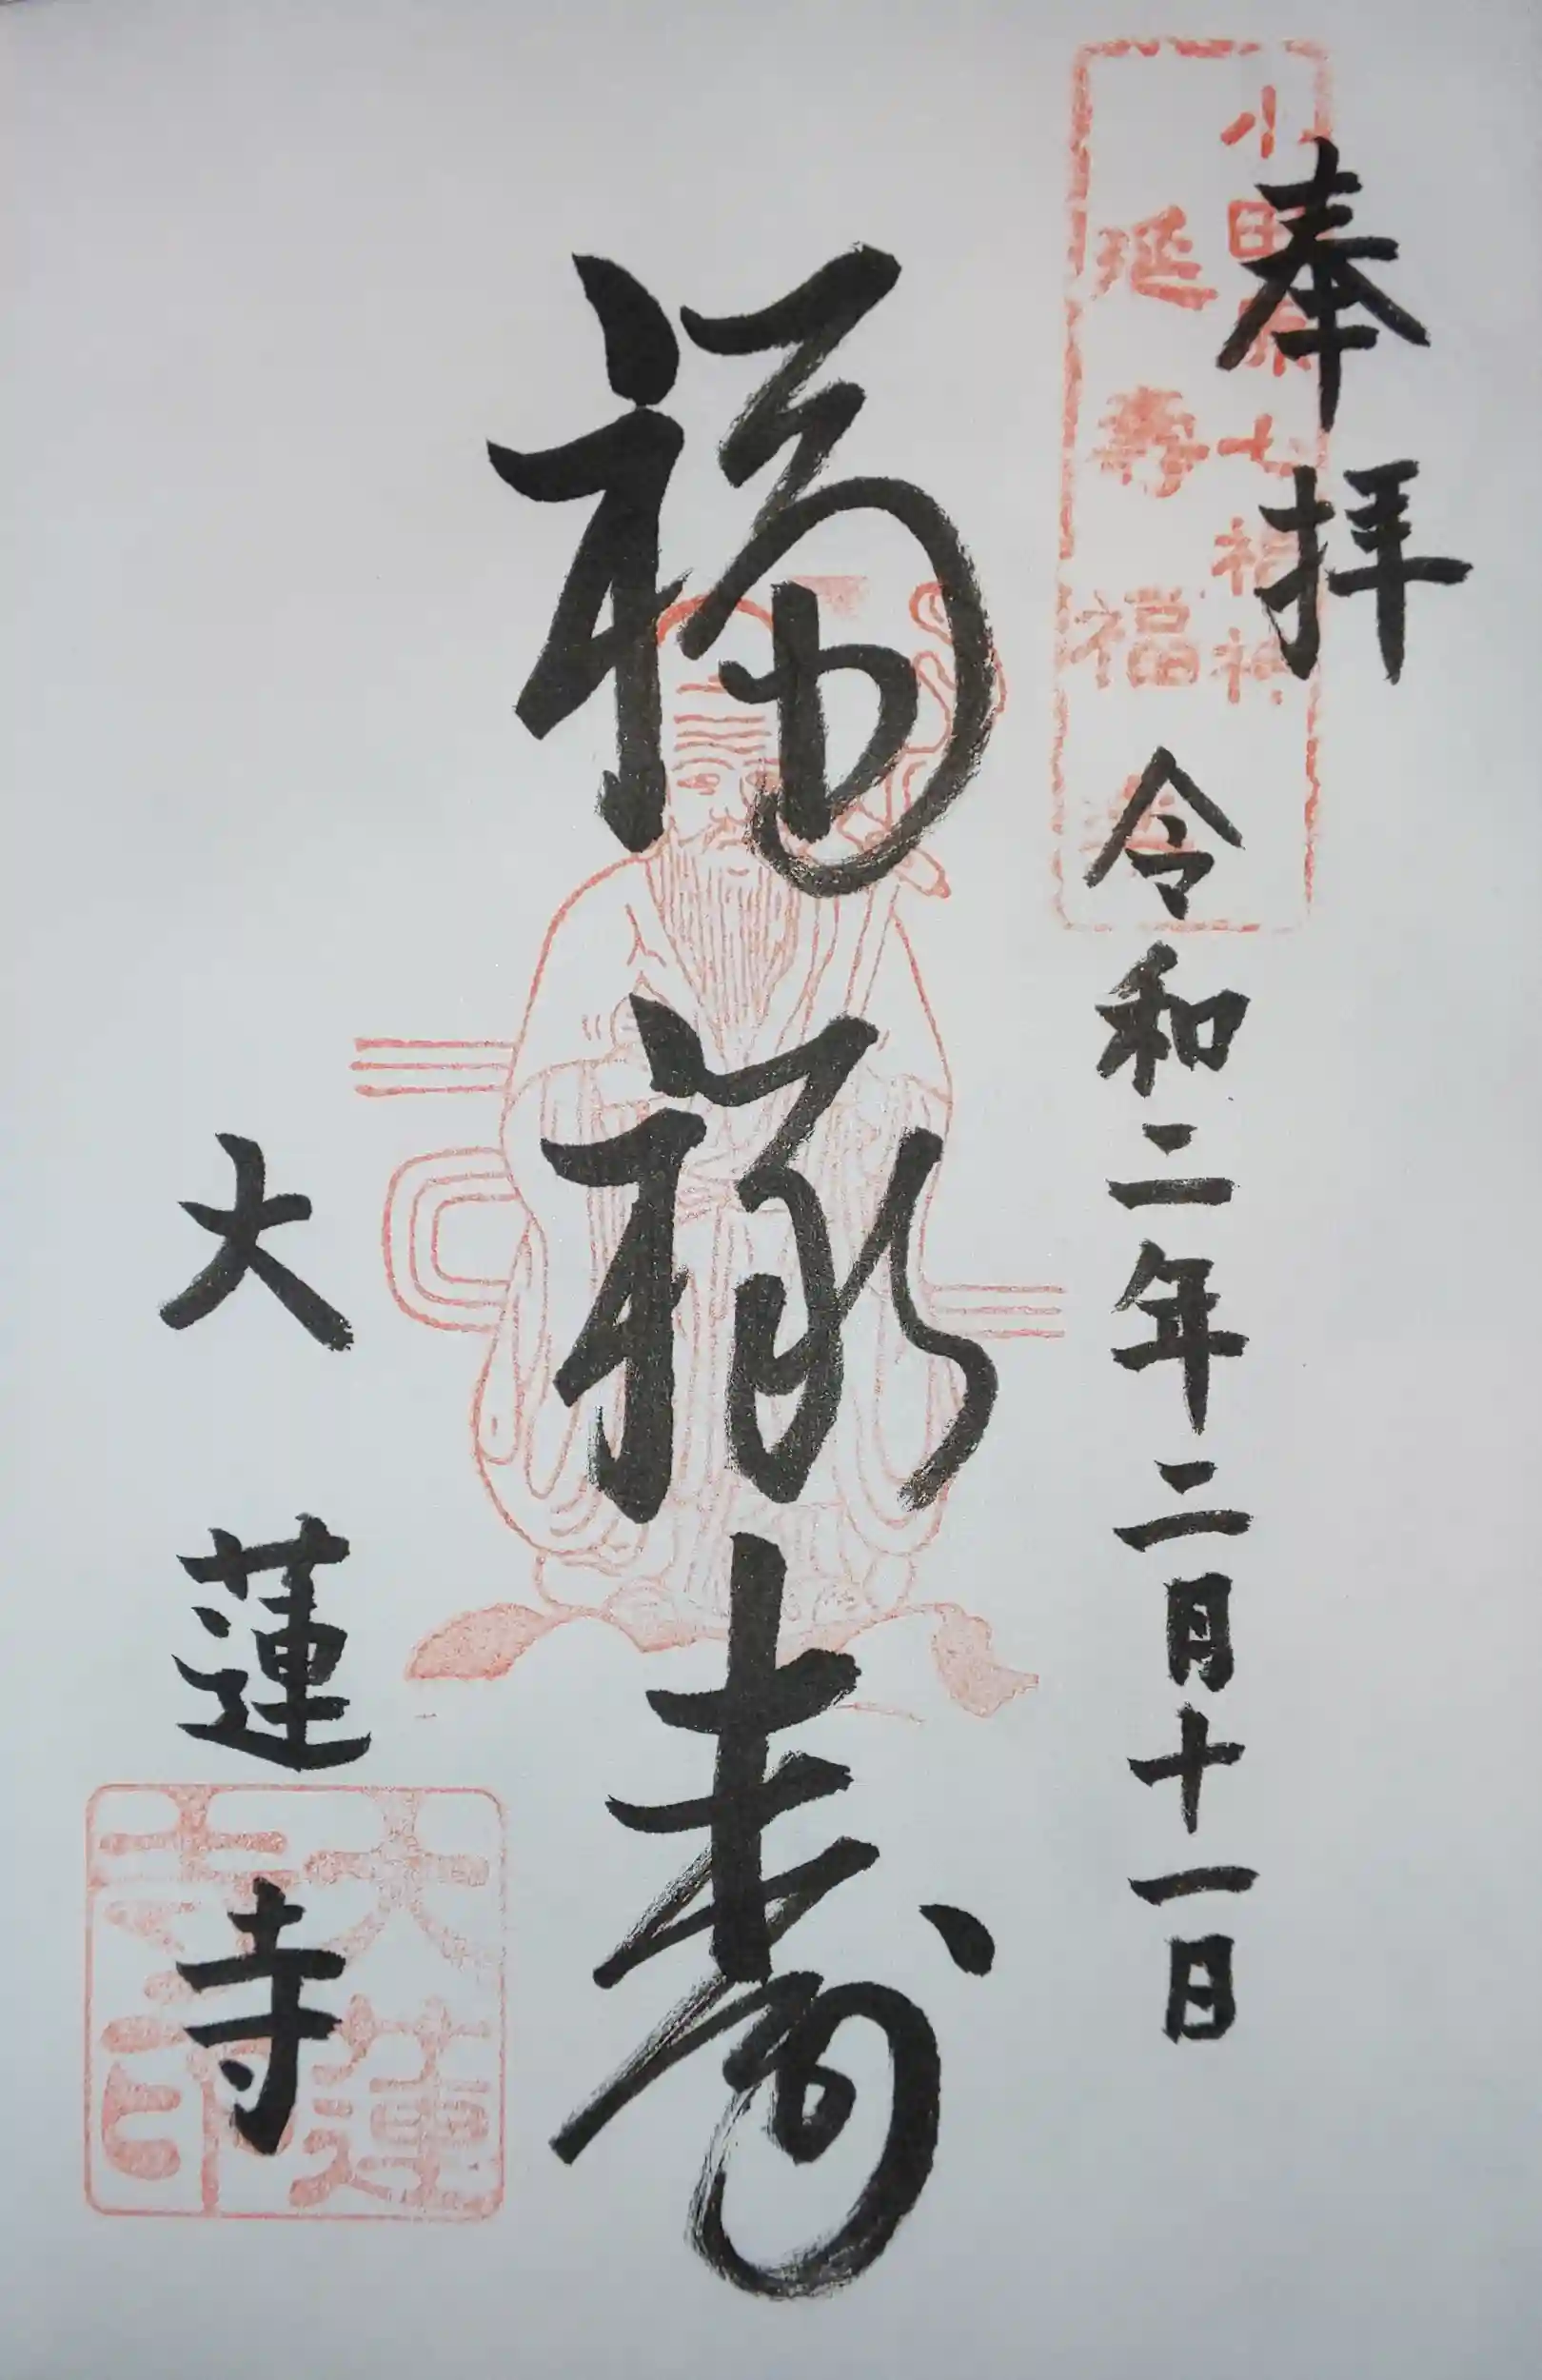 奉拝
令和二年二月十一日
小田原七福神
延壽福
福禄寿
大蓮寺
大蓮寺印